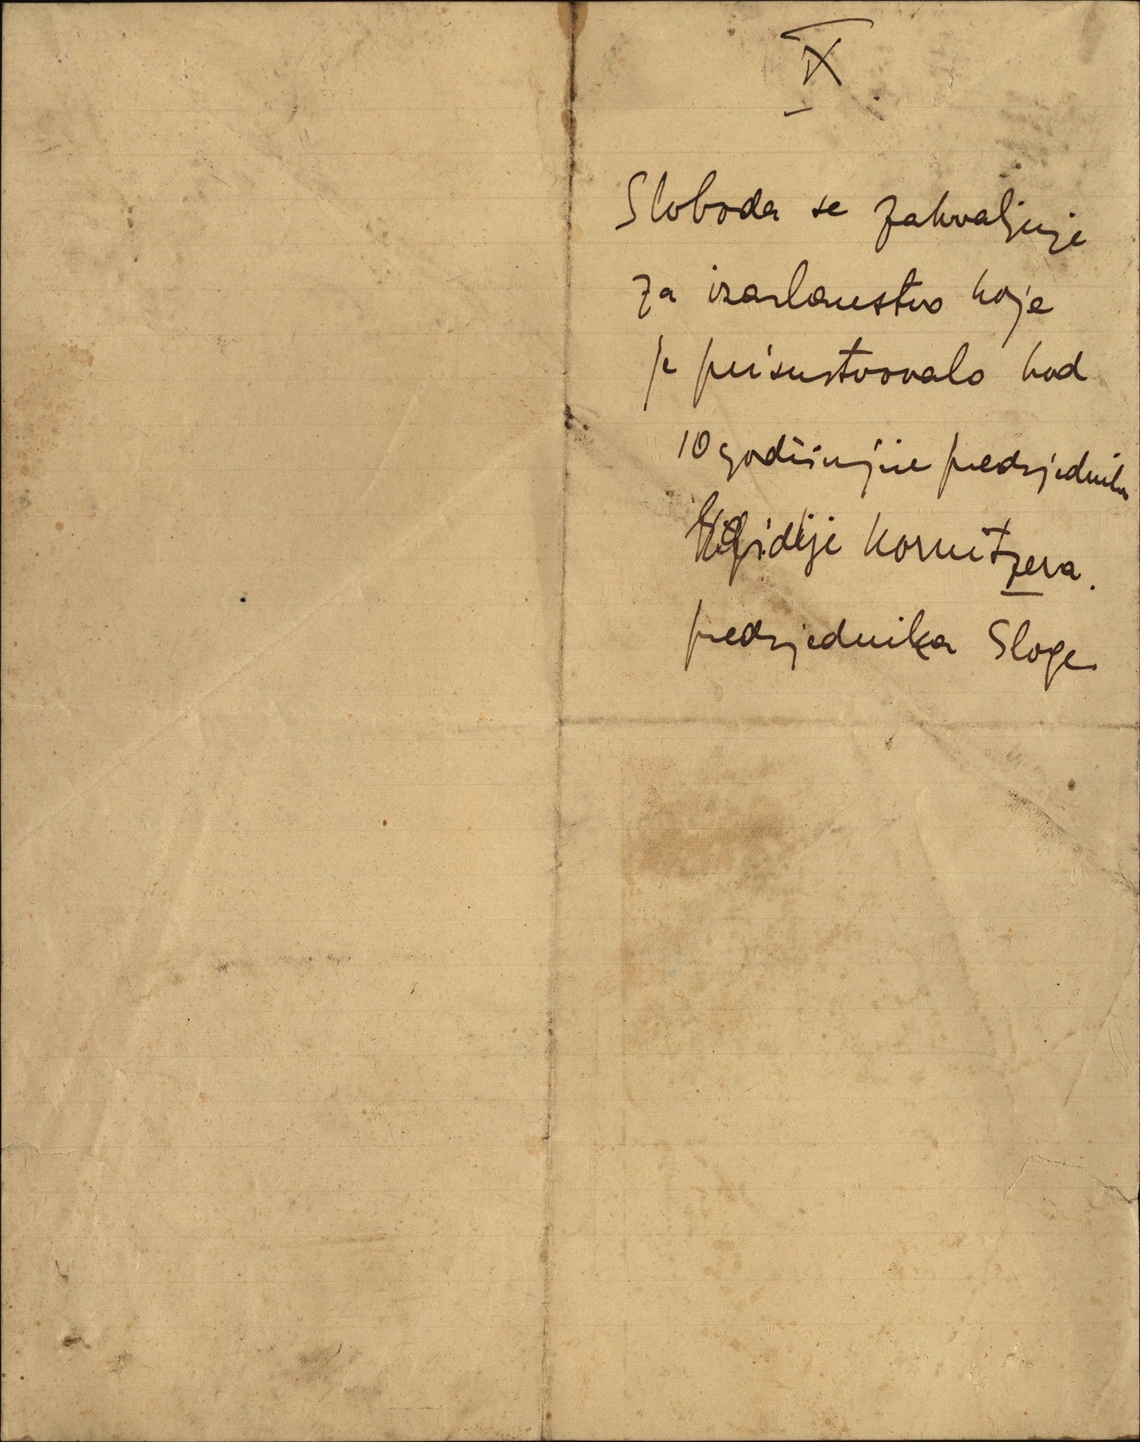 IX
Sloboda se zahvaljuje
za izaslanstvo koje
je prisustvovalo kod
10 godišnjice predsjednika
Egidije Kornitzera.
predsjednika Sloge